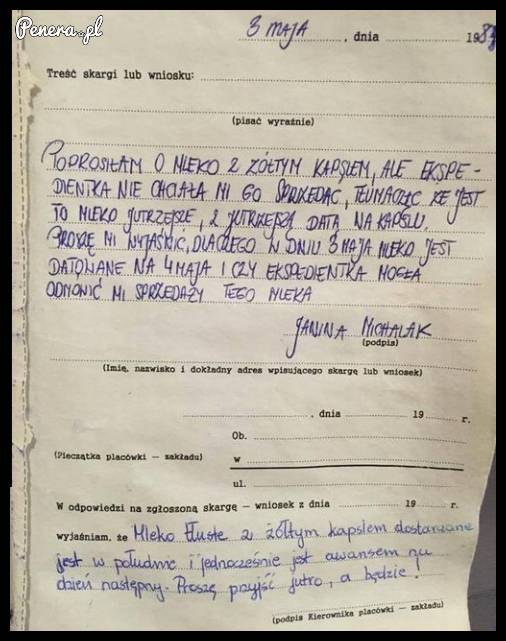 Penera.pl
3 MAJA, dnia 1983
Treść skargi lub wniosku:
(pisać wyraźnie)
POPROSIŁAM O MLEKO Z ŻÓŁTYM KAPSLEM, ALE EKSPE-
DIENTKA NIE CHCIAŁA MI GO SPRZEDAĆ, TŁUMACZĄC ŻE JEST
TO MLEKO JUTRZEJSZE, Z JUTRZEJSZĄ DATĄ NA KAPSLU.
PROSZĘ MI WYJAŚNIĆ, DLACZEGO W DNIU 3 MAJA MLEKO JEST
DATOWANE NA 4 MAJA I CZY EKSPEDIENTKA MOGŁA
ODMÓWIĆ MI SPRZEDAŻY TEGO MLEKA
JANINA MICHALAK
(podpis)
(Imię, nazwisko i dokładny adres wpisującego skargę lub wniosek)
, dnia 19 r.
Ob.
(Pieczątka placówki — zakładu) w
ul.
W odpowiedzi na zgłoszoną skargę — wniosek z dnia 19 r.
wyjaśniam, że Mleko tłuste z żółtym kapslem dostarczane
jest w południe i jednocześnie jest awansem na
dzień następny. Proszę przyjść jutro, a będzie!
(podpis Kierownika placówki — zakładu)